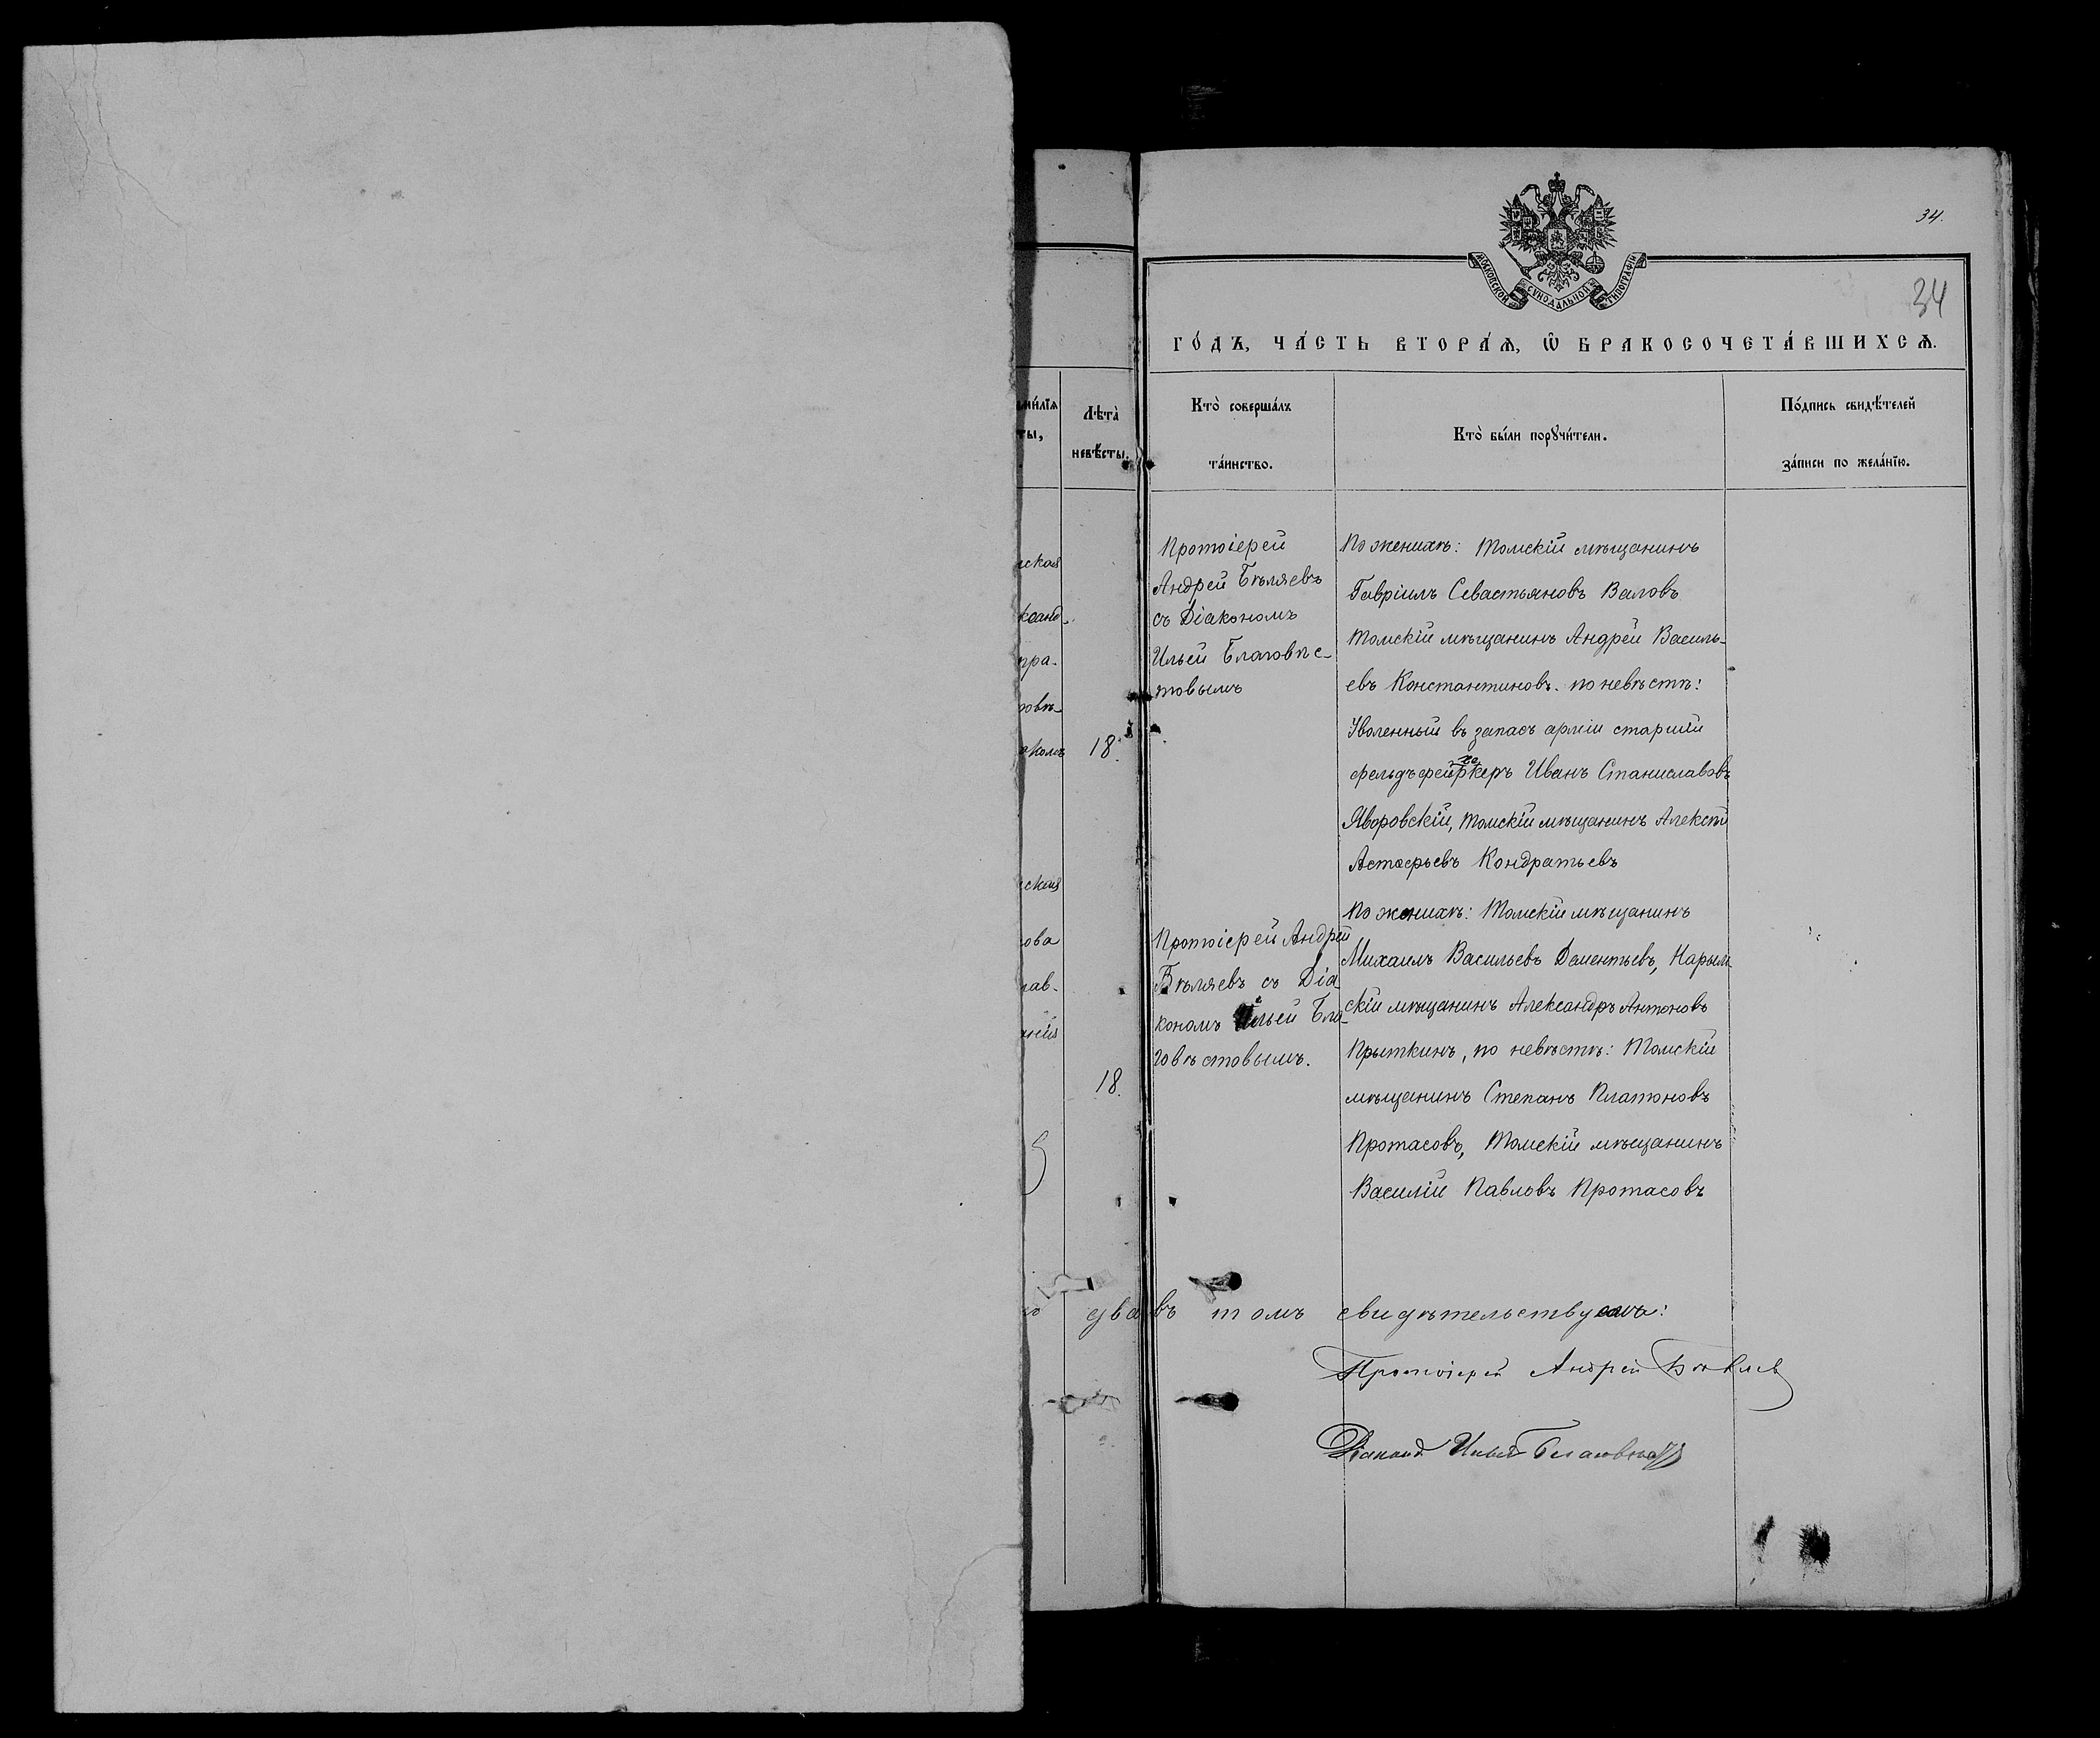 34.
МОСКОВСКОЙ СѴНОДАЛЬНОЙ ТИПОГРАФІИ
34
ГО́ДЪ, ЧА́СТЬ ВТОРА́Ѧ, Ѽ БРАКОСОЧЕТА́ВШИХСѦ.
Лѣта̀
невѣ́сты.
Кто̀ соверша́лъ
та́инство.
Кто̀ бы́ли порꙋчи́тели.
По́дпись свидѣ́телей
за́писи по жела́нїю.
18.
Протоіерей
Андрей Бѣляевъ
съ Діакономъ
Ильей Благовѣс-
товымъ
По женихѣ: Томскій мѣщанинъ
Гавріилъ Севастьяновъ Валовъ
Томскій мѣщанинъ Андрей Василь-
евъ Константиновъ. по невѣстѣ:
Уволенный въ запасъ арміи старшій
Иванъ Станиславовъ
Яворовскій, Томскій мѣщанинъ
Астафьевъ Кондратьевъ
18.
Протоіерей Андрей
Бѣляевъ съ Діа-
кономъ Ильей Бла-
говѣстовымъ.
По женихѣ: Томскій мѣщанинъ
Михаилъ Васильевъ Дементьевъ, Нарым-
скій мѣщанинъ Александръ Антоновъ
Прыткинъ, по невѣстѣ: Томскій
мѣщанинъ Степанъ Платоновъ
Протасовъ, Томскій мѣщанинъ
Василій Павловъ Протасовъ
два въ томъ свидѣтельствуемъ:
Протоіерей Андрей Бѣляев
Діаконъ Илья Благовѣстовъ